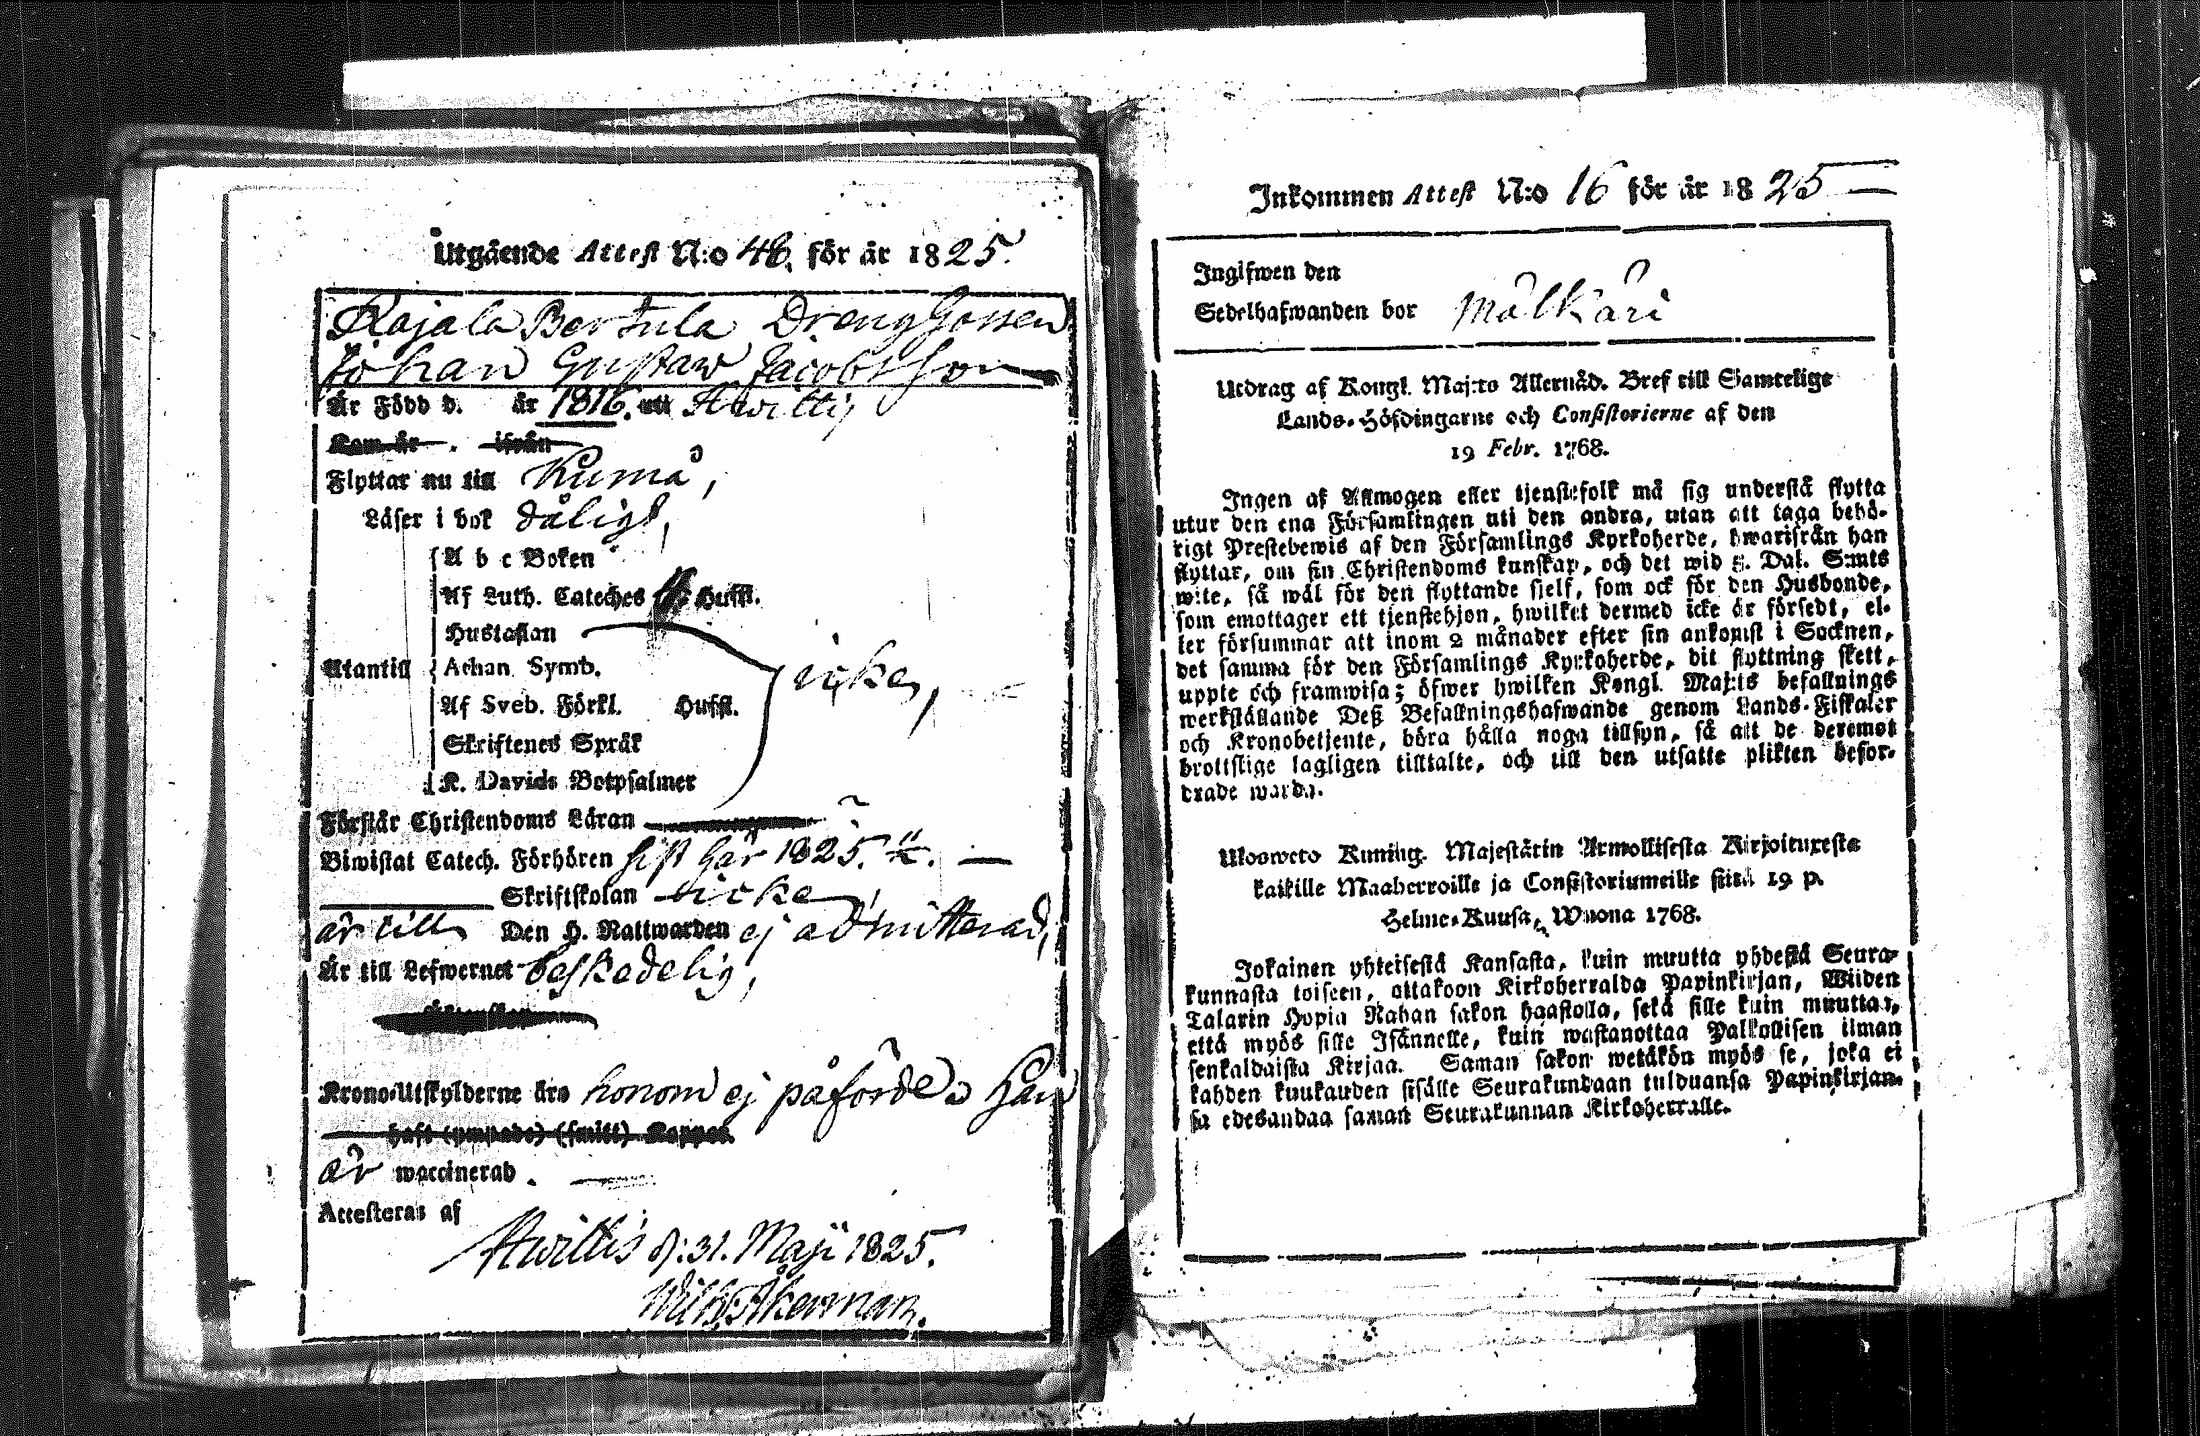 Utgående Attest N:o 46. för år 1825.
Kajala Bertula Dreng Gossen
Johan Gustaw Jacobsson
Är Född d. år 1816. uti Hwittis
Kom år . ifrån
Flyttar nu till Kumå,
Läser i bok dåligt,
A b c Boken
Af Luth. Cateches Hufst.
Hustaflan
Utantill Athan. Symb. icke,
Af Sveb. Förkl. Hufst.
Skriftenes Språk
K. Davids Botpsalmer
Förstår Christendoms Läran
Biwistat Catech. Förhören sist här 1825.
Skriftskolan icke
är till Den H. Nattwarden ej admitterad,
Är till Lefwernet beskedelig,
Krono-Utskylderne äro honom ej påförde. Han
haft (ympade) (smitt) Koppor.
är waccinerad.
Attesteras af
Hwittis d. 31. Maji 1825.
Wilh. Åkerman.
Inkommen Attest N:o 16 för år 1825
Ingifwen den
Sedelhafwanden bor Målkåri
Utdrag af Kongl. Maj:ts Allernåd. Bref till Samtelige
Lands-Höfdingarne och Consistorierne af den
19 Febr. 1768.
Ingen af Allmogen eller tjenstefolk må sig understå flytta
utur den ena Församlingen uti den andra, utan att taga behö-
rigt Prestebewis af den Församlings Kyrkoherde, hwarifrån han
flyttar, om sin Christendoms kunskap, och det wid 5. Dal. S:mts
wite, så wäl för den flyttande sjelf, som ock för den Husbonde,
som emottager ett tjenstehjon, hwilket dermed icke är försedt, el-
ler försummar att inom 2 månader efter sin ankomst i Socknen,
det samma för den Församlings Kyrkoherde, dit flyttning skett,
uppte och framwisa; öfwer hwilken Kongl. Maj:ts befallnings
werkställande Deß Befallningshafwande genom Lands-Fiskaler
och Kronobetjente, böra hålla noga tillsyn, så att de deremot
brottslige lagligen tilltalte, och till den utsatte plikten befor-
drade warda.
Uloswето Kuning. Majestätin Armollisesta Kirjoituxesta
kaikille Maaherroille ja Consistoriumeille siitä 19 p.
Helme-Kuusa, Wuona 1768.
Jokainen yhteisestä Kansasta, kuin muutta yhdestä Seura-
kunnasta toiseen, ottakoon Kirkoherralda Papinkirjan, Wiiden
Talarin Hopia Rahan sakon haastolla, sekä sille kuin muuttaa,
että myös sille Isännelle, kuin wastanottaa Palkollisen ilman
senkaldaista Kirjaa. Saman sakon wetäkön myös se, joka ei
kahden kuukauden sisälle Seurakundaan tulduansa Papinkirjan-
sa edesandaa saman Seurakunnan Kirkoherralle.